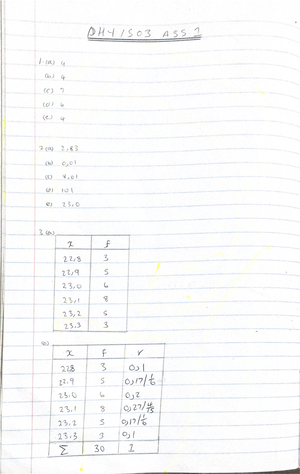 DMH1503 ASS 2
1. (a) 4
(b) 4
(c) 7
(d) 6
(e) 4
2. (a) 2,83
(b) 0,01
(c) 8,01
(d) 101
(e) 23,0
3. (a)
x f
22,8 3
22,9 5
23,0 6
23,1 8
23,2 5
23,3 3
x f r
22,8 3 0,1
22,9 5 0,17/1/6
23,0 6 0,2
23,1 8 0,27/4/15
23,2 5 0,17/1/6
23,3 3 0,1
Σ 30 1